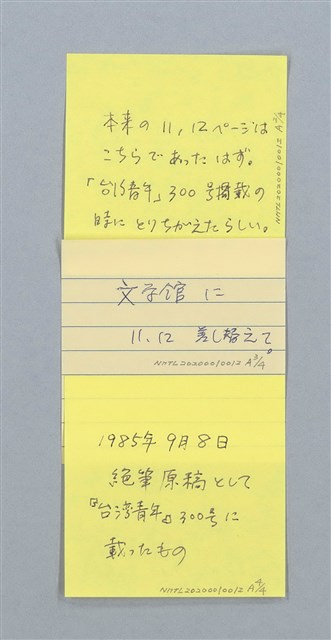 本来の11,12ページは
こちらであったはず。
「台湾青年」300号掲載の
時にとりちがえたらしい。
NMTL20200010012 A 2/4
文学館に
11、12 差し替えて。
NMTL20200010012 A 3/4
1985年9月8日
絶筆原稿として
『台湾青年』300号に
載ったもの
NMTL20200010012 A 4/4